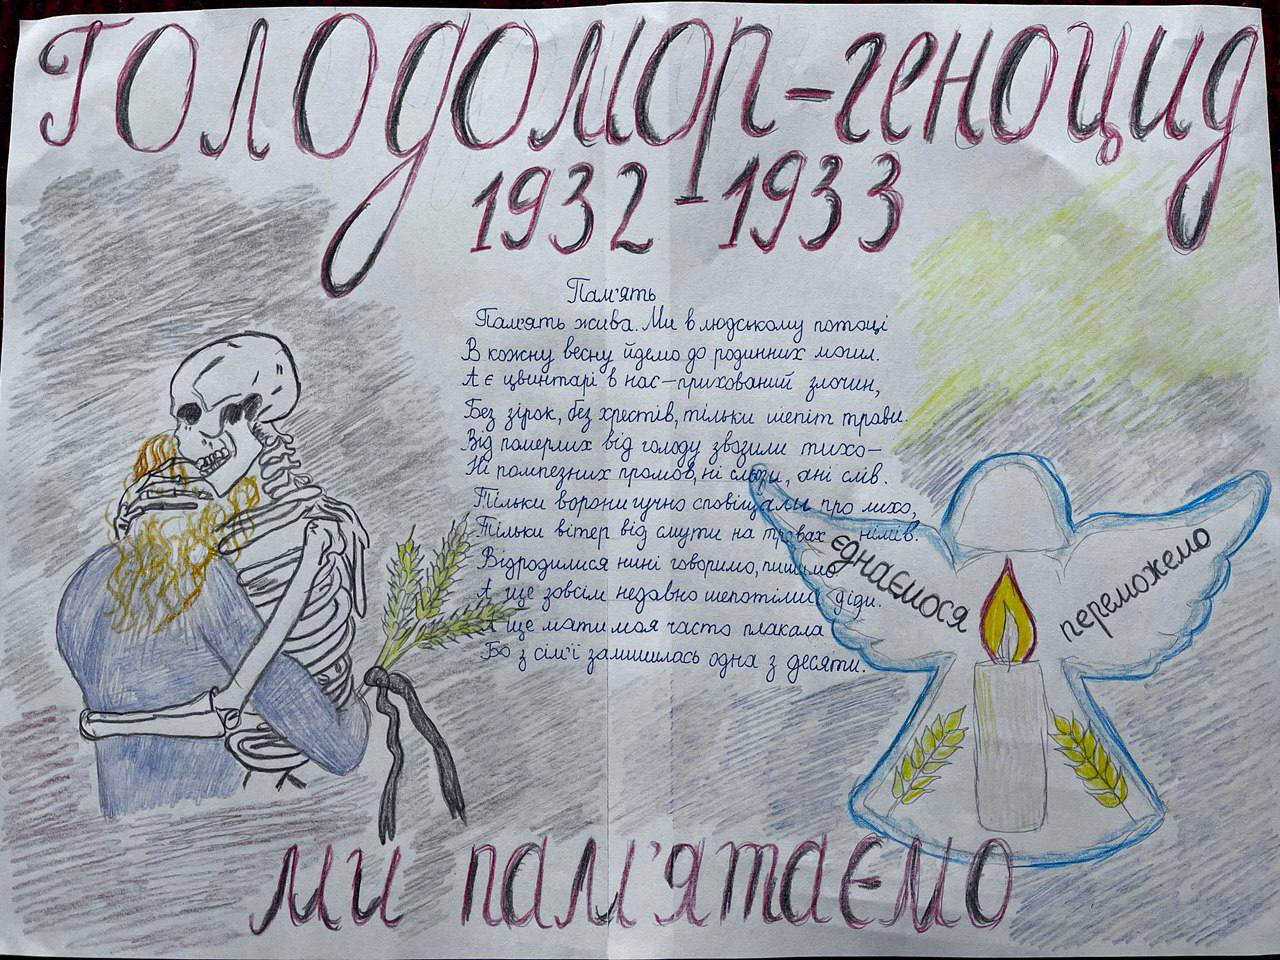 Голодомор-геноцид
1932-1933
Пам'ять
Пам'ять жива. Ми в людському потоці
В кожну весну йдемо до родинних могил.
А є цвинтарі в нас–прихований злочин,
Без зірок, без хрестів, тільки шепіт трави.
Від померлих від голоду звозили тихо–
Ні помпезних промов, ні сльози, ані слів.
Тільки ворони гучно сповіщали про лихо,
Тільки вітер від смути на травах німів.
Відродилися нині говоримо, пишемо
А ще зовсім недавно шепотілись діди.
А ще мати моя часто плакала
Бо з сім'ї залишилась одна з десяти.
єднаємося
переможемо
ми пам'ятаємо